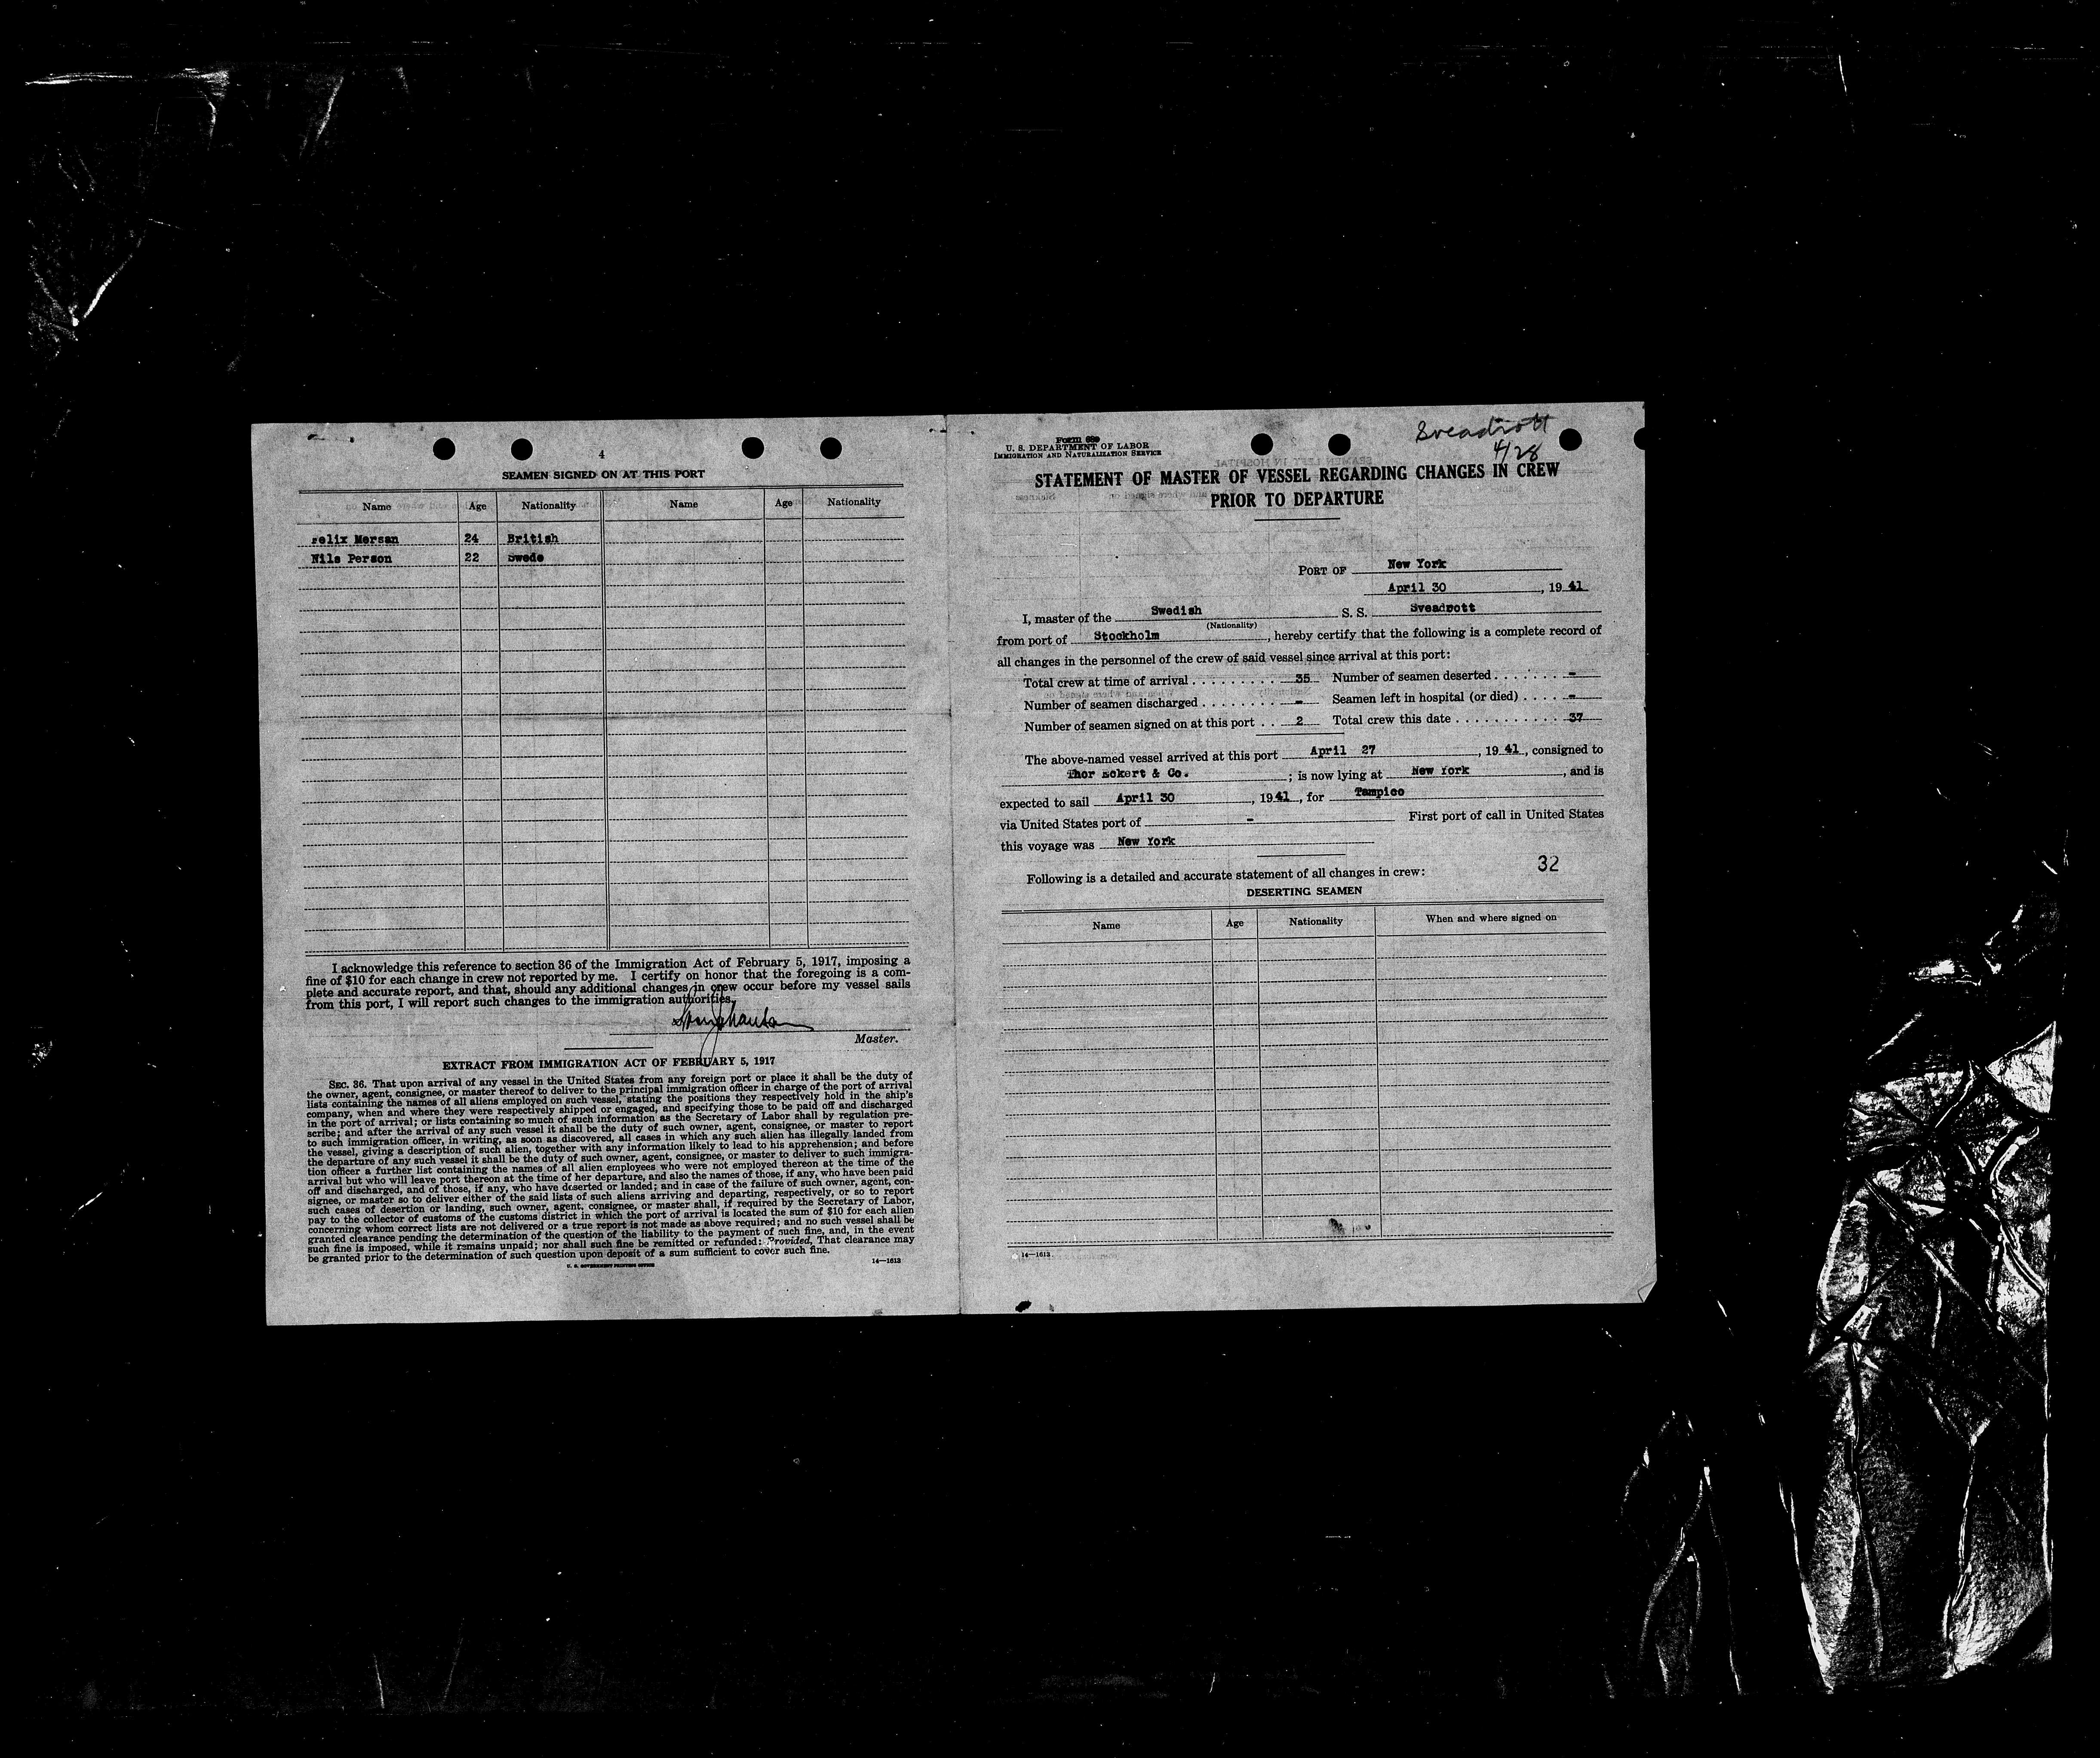 4
SEAMEN SIGNED ON AT THIS PORT
Name Age Nationality Name Age Nationality
Felix Mersan 24 British
Nils Person 22 Swede
I acknowledge this reference to section 36 of the Immigration Act of February 5, 1917, imposing a
fine of $10 for each change in crew not reported by me. I certify on honor that the foregoing is a com-
plete and accurate report, and that, should any additional changes in crew occur before my vessel sails
from this port, I will report such changes to the immigration authorities.
Master.
EXTRACT FROM IMMIGRATION ACT OF FEBRUARY 5, 1917
SEC. 36. That upon arrival of any vessel in the United States from any foreign port or place it shall be the duty of
the owner, agent, consignee, or master thereof to deliver to the principal immigration officer in charge of the port of arrival
lists containing the names of all aliens employed on such vessel, stating the positions they respectively hold in the ship's
company, when and where they were respectively shipped or engaged, and specifying those to be paid off and discharged
in the port of arrival; or lists containing so much of such information as the Secretary of Labor shall by regulation pre-
scribe; and after the arrival of any such vessel it shall be the duty of such owner, agent, consignee, or master to report
to such immigration officer, in writing, as soon as discovered, all cases in which any such alien has illegally landed from
the vessel, giving a description of such alien, together with any information likely to lead to his apprehension; and before
the departure of any such vessel it shall be the duty of such owner, agent, consignee, or master to deliver to such immigra-
tion officer a further list containing the names of all alien employees who were not employed thereon at the time of the
arrival but who will leave port thereon at the time of her departure, and also the names of those, if any, who have been paid
off and discharged, and of those, if any, who have deserted or landed; and in case of the failure of such owner, agent, con-
signee, or master so to deliver either of the said lists of such aliens arriving and departing, respectively, or so to report
such cases of desertion or landing, such owner, agent, consignee, or master shall, if required by the Secretary of Labor,
pay to the collector of customs of the customs district in which the port of arrival is located the sum of $10 for each alien
concerning whom correct lists are not delivered or a true report is not made as above required; and no such vessel shall be
granted clearance pending the determination of the question of the liability to the payment of such fine, and, in the event
such fine is imposed, while it remains unpaid; nor shall such fine be remitted or refunded: Provided, That clearance may
be granted prior to the determination of such question upon deposit of a sum sufficient to cover such fine.
U. S. GOVERNMENT PRINTING OFFICE 14—1613
Form 689
U. S. DEPARTMENT OF LABOR
IMMIGRATION AND NATURALIZATION SERVICE
Sveadrott
4/28
STATEMENT OF MASTER OF VESSEL REGARDING CHANGES IN CREW
PRIOR TO DEPARTURE
PORT OF New York
April 30, 1941
I, master of the Swedish S. S. Sveadrott
(Nationality)
from port of Stockholm, hereby certify that the following is a complete record of
all changes in the personnel of the crew of said vessel since arrival at this port:
Total crew at time of arrival . . . . . . . . . 35 Number of seamen deserted . . . . . . . -
Number of seamen discharged . . . . . . . . - Seamen left in hospital (or died) . . . . -
Number of seamen signed on at this port . . 2 Total crew this date . . . . . . . . . . . 37
The above-named vessel arrived at this port April 27, 1941, consigned to
Thor Eckert & Co. ; is now lying at New York, and is
expected to sail April 30, 1941, for Tampico
via United States port of - First port of call in United States
this voyage was New York
32
Following is a detailed and accurate statement of all changes in crew:
DESERTING SEAMEN
Name Age Nationality When and where signed on
14—1613